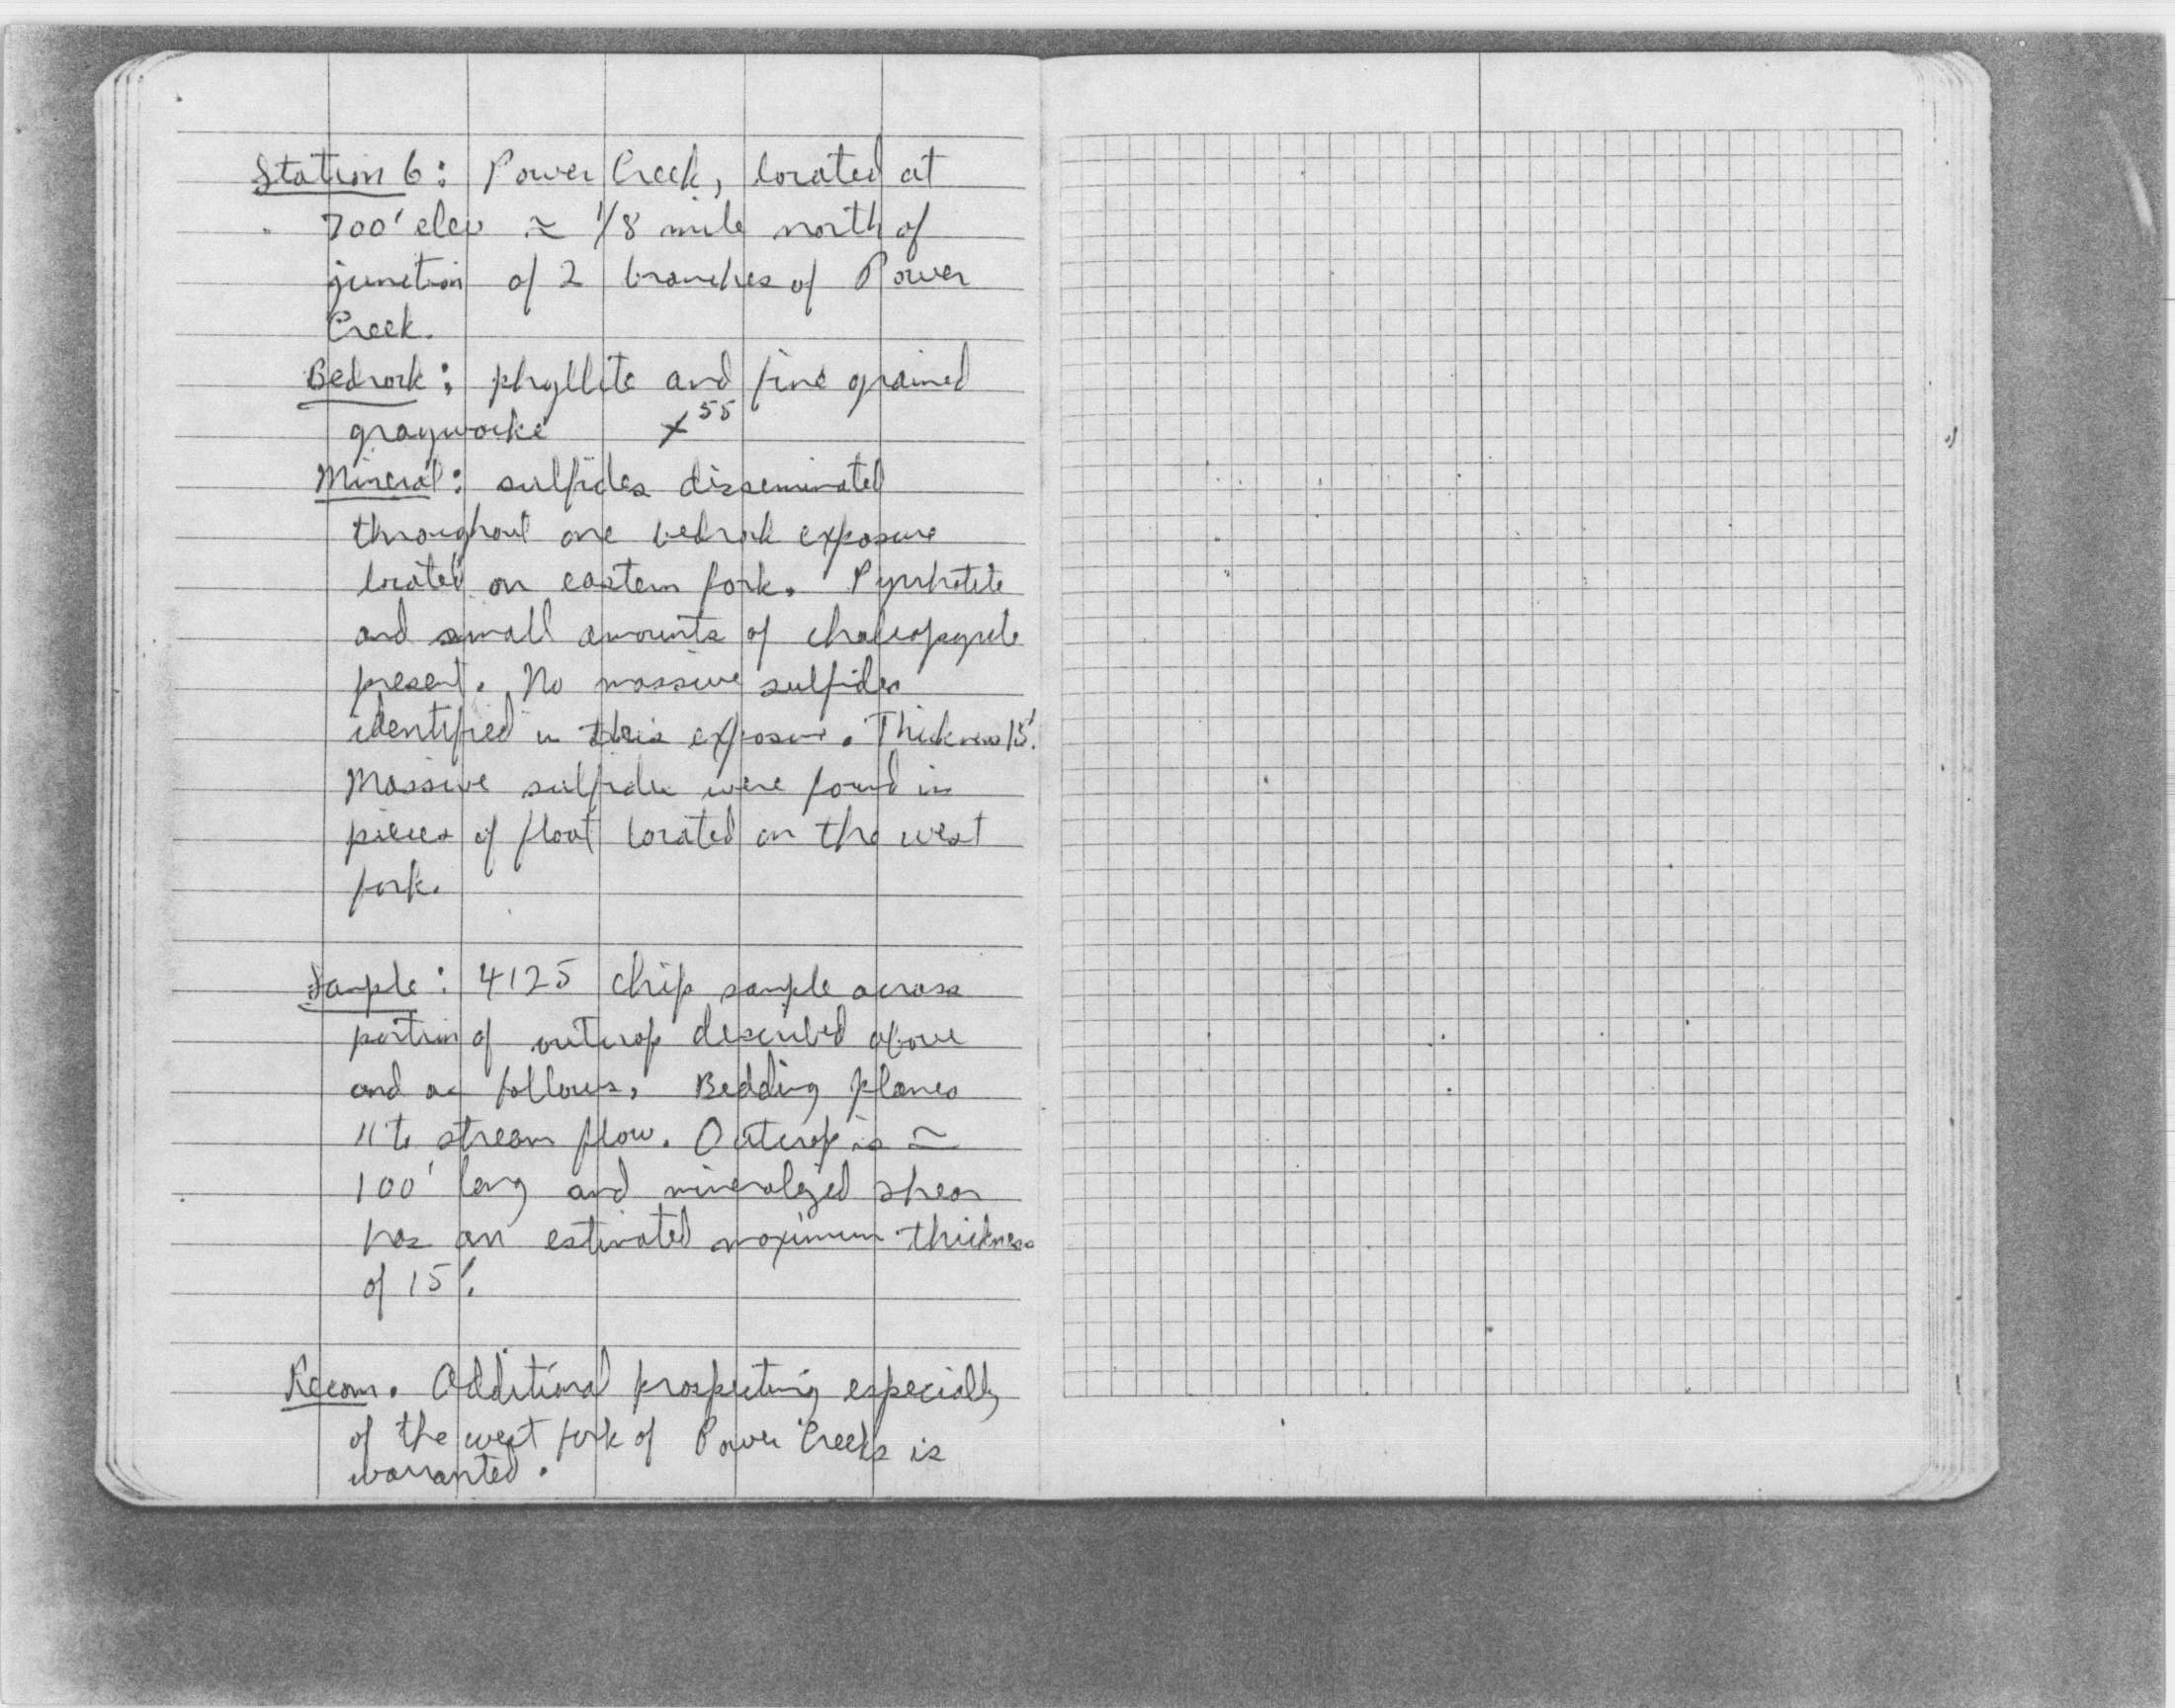 Station 6: Power Creek, located at
700' elev ≈ 1/8 mile north of
junction of 2 branches of Power
Creek.
Bedrock: phyllite and fine grained
graywacke 55
Mineral: sulfides disseminated
throughout one bedrock exposure
located on eastern fork. Pyrrhotite
and small amounts of chalcopyrite
present. No massive sulfides
identified in this exposure. Thickness 15'.
Massive sulfides were found in
pieces of float located on the west
fork.
Sample: 4125 chip sample across
portion of outcrop described above
and as follows. Bedding planes
11 to stream flow. Outcrop is ≈
100' long and mineralized shear
has an estimated maximum thickness
of 15'.
Recom. Additional prospecting especially
of the west fork of Power Creeks is
warranted.